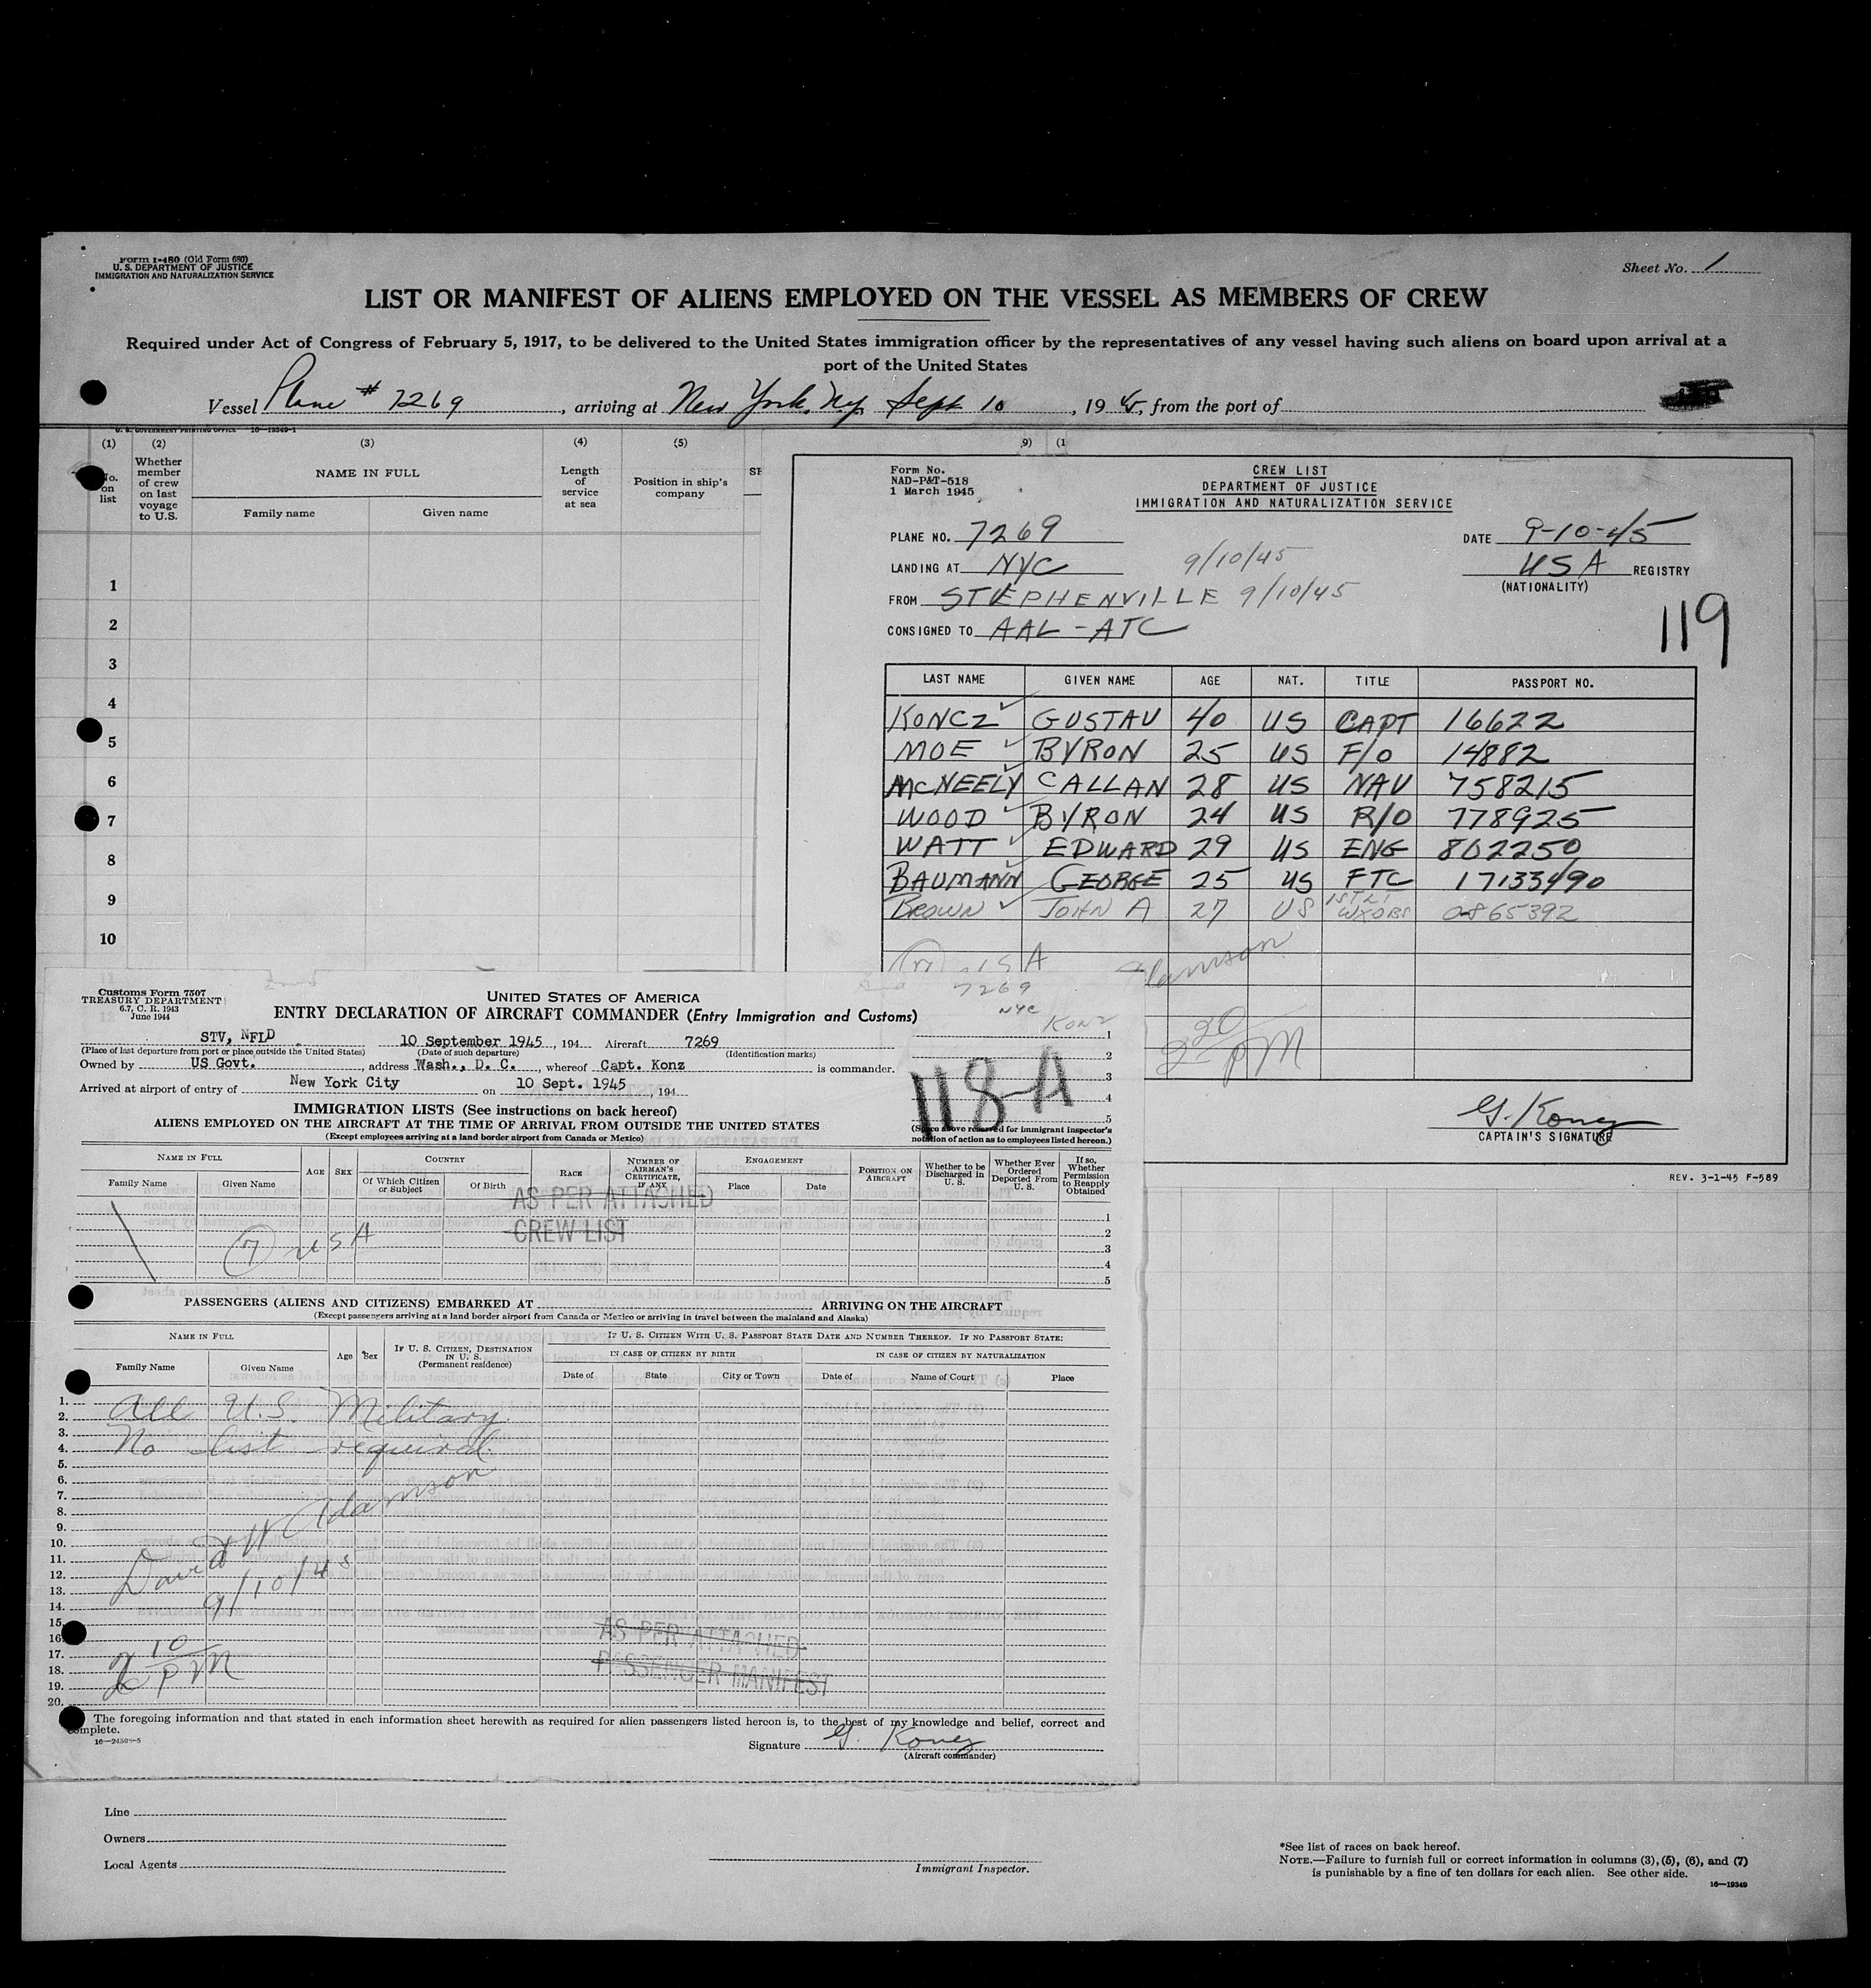 Form I-480 (Old Form 680)
U. S. DEPARTMENT OF JUSTICE
IMMIGRATION AND NATURALIZATION SERVICE
Sheet No. 1
LIST OR MANIFEST OF ALIENS EMPLOYED ON THE VESSEL AS MEMBERS OF CREW
Required under Act of Congress of February 5, 1917, to be delivered to the United States immigration officer by the representatives of any vessel having such aliens on board upon arrival at a
port of the United States
Vessel Plane # 7269, arriving at New York, Ny. Sept 10, 1945, from the port of
U. S. GOVERNMENT PRINTING OFFICE 16—19349-1
(1) (2) (3) (4) (5) 9) (1
No. on list
Whether member of crew on last voyage to U.S.
NAME IN FULL
Family name Given name
Length of service at sea
Position in ship's company
1
2
3
4
5
6
7
8
9
10
Form No.
NAD-P&T-518
1 March 1945
CREW LIST
DEPARTMENT OF JUSTICE
IMMIGRATION AND NATURALIZATION SERVICE
PLANE NO. 7269 DATE 9-10-45
LANDING AT NYC 9/10/45 USA REGISTRY
(NATIONALITY)
FROM STEPHENVILLE 9/10/45
CONSIGNED TO AAL-ATC
119
LAST NAME GIVEN NAME AGE NAT. TITLE PASSPORT NO.
KONCZ GUSTAV 40 US CAPT 16622
MOE BYRON 25 US F/O 14882
MCNEELY CALLAN 28 US NAV 758215
WOOD BYRON 24 US R/O 778925
WATT EDWARD 29 US ENG 802250
BAUMANN GEORGE 25 US FTC 17133490
BROWN JOHN A 27 US 1ST LT WXOBS 0865392
Adamson
7269
NYC
Konz
2 20 PM
G. Koncz
CAPTAIN'S SIGNATURE
REV. 3-1-45 F-589
Customs Form 7507
TREASURY DEPARTMENT
6.7, C. R. 1943
June 1944
UNITED STATES OF AMERICA
ENTRY DECLARATION OF AIRCRAFT COMMANDER (Entry Immigration and Customs)
STV, NFLD 10 September 1945, 194 Aircraft 7269
(Place of last departure from port or place outside the United States) (Date of such departure) (Identification marks)
Owned by US Govt., address Wash., D. C., whereof Capt. Konz is commander.
Arrived at airport of entry of New York City on 10 Sept. 1945, 194
1
2
3
4
5
118-A
(Space above reserved for immigrant inspector's
notation of action as to employees listed hereon.)
IMMIGRATION LISTS (See instructions on back hereof)
ALIENS EMPLOYED ON THE AIRCRAFT AT THE TIME OF ARRIVAL FROM OUTSIDE THE UNITED STATES
(Except employees arriving at a land border airport from Canada or Mexico)
NAME IN FULL
Family Name Given Name
AGE SEX
COUNTRY
Of Which Citizen or Subject Of Birth
RACE
NUMBER OF AIRMAN'S CERTIFICATE, IF ANY
ENGAGEMENT
Place Date
POSITION ON AIRCRAFT
Whether to be Discharged in U. S.
Whether Ever Ordered Deported From U. S.
If so, Whether Permission to Reapply Obtained
AS PER ATTACHED
CREW LIST
7 USA
1
2
3
4
5
PASSENGERS (ALIENS AND CITIZENS) EMBARKED AT ARRIVING ON THE AIRCRAFT
(Except passengers arriving at a land border airport from Canada or Mexico or arriving in travel between the mainland and Alaska)
NAME IN FULL
Family Name Given Name
Age Sex
IF U. S. CITIZEN, DESTINATION IN U. S. (Permanent residence)
IF U. S. CITIZEN WITH U. S. PASSPORT STATE DATE AND NUMBER THEREOF. IF NO PASSPORT STATE:
IN CASE OF CITIZEN BY BIRTH IN CASE OF CITIZEN BY NATURALIZATION
Date of State City or Town Date of Name of Court Place
1.
2.
3.
4.
5.
6.
7.
8.
9.
10.
11.
12.
13.
14.
15.
16.
17.
18.
19.
20.
All U.S. Military
No list required.
David W Adamson
9/10/45
2 10 PM
AS PER ATTACHED
PASSENGER MANIFEST
The foregoing information and that stated in each information sheet herewith as required for alien passengers listed hereon is, to the best of my knowledge and belief, correct and
complete.
16—24598-5
Signature G. Koncz
(Aircraft commander)
Line
Owners
Local Agents
Immigrant Inspector.
*See list of races on back hereof.
NOTE.—Failure to furnish full or correct information in columns (3), (5), (6), and (7)
is punishable by a fine of ten dollars for each alien. See other side.
16—19349